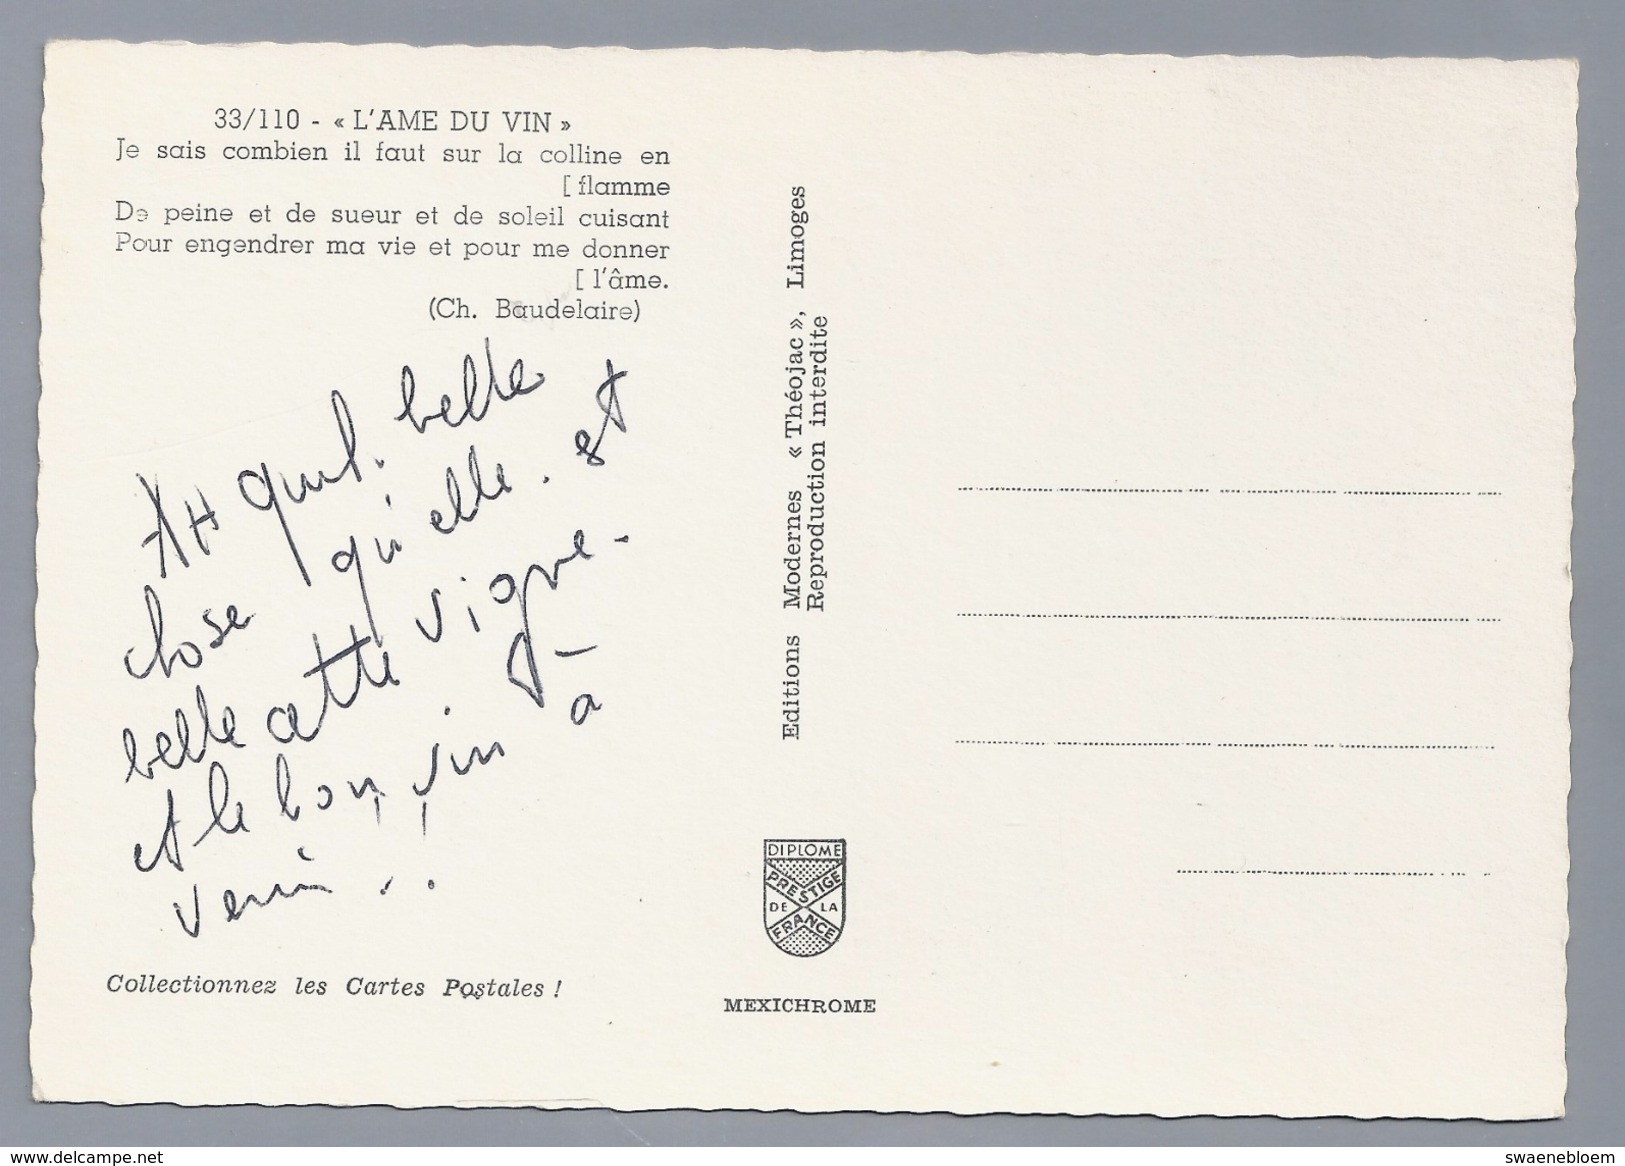 33/110 - « L'AME DU VIN »
Je sais combien il faut sur la colline en
[ flamme
De peine et de sueur et de soleil cuisant
Pour engendrer ma vie et pour me donner
[ l'âme.
(Ch. Baudelaire)
AH quel. belle
chose qu'elle. est
belle cette vigne.
et le bon vin à
venir ..!
Collectionnez les Cartes Postales !
Editions Modernes « Théojac », Limoges
Reproduction interdite
DIPLOME
PRESTIGE
DE LA
FRANCE
MEXICHROME
www.delcampe.net
swaenebloem